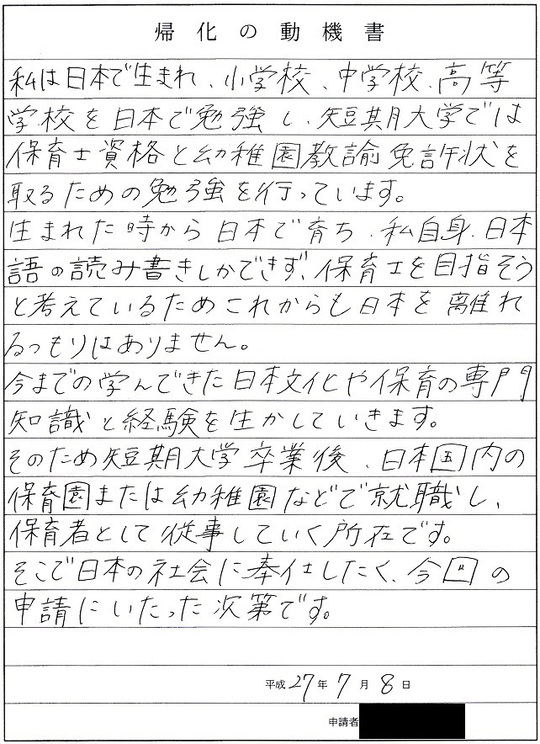 帰化の動機書
私は日本で生まれ、小学校、中学校、高等
学校を日本で勉強し、短期大学では
保育士資格と幼稚園教諭免許状を
取るための勉強を行っています。
生まれた時から日本で育ち、私自身、日本
語の読み書きしかできず、保育士を目指そう
と考えているためこれからも日本を離れ
るつもりはありません。
今までの学んできた日本文化や保育の専門
知識と経験を生かしていきます。
そのため短期大学卒業後、日本国内の
保育園または幼稚園などで就職し、
保育者として従事していく所在です。
そこで日本の社会に奉仕したく、今回の
申請にいたった次第です。
平成27年7月8日
申請者